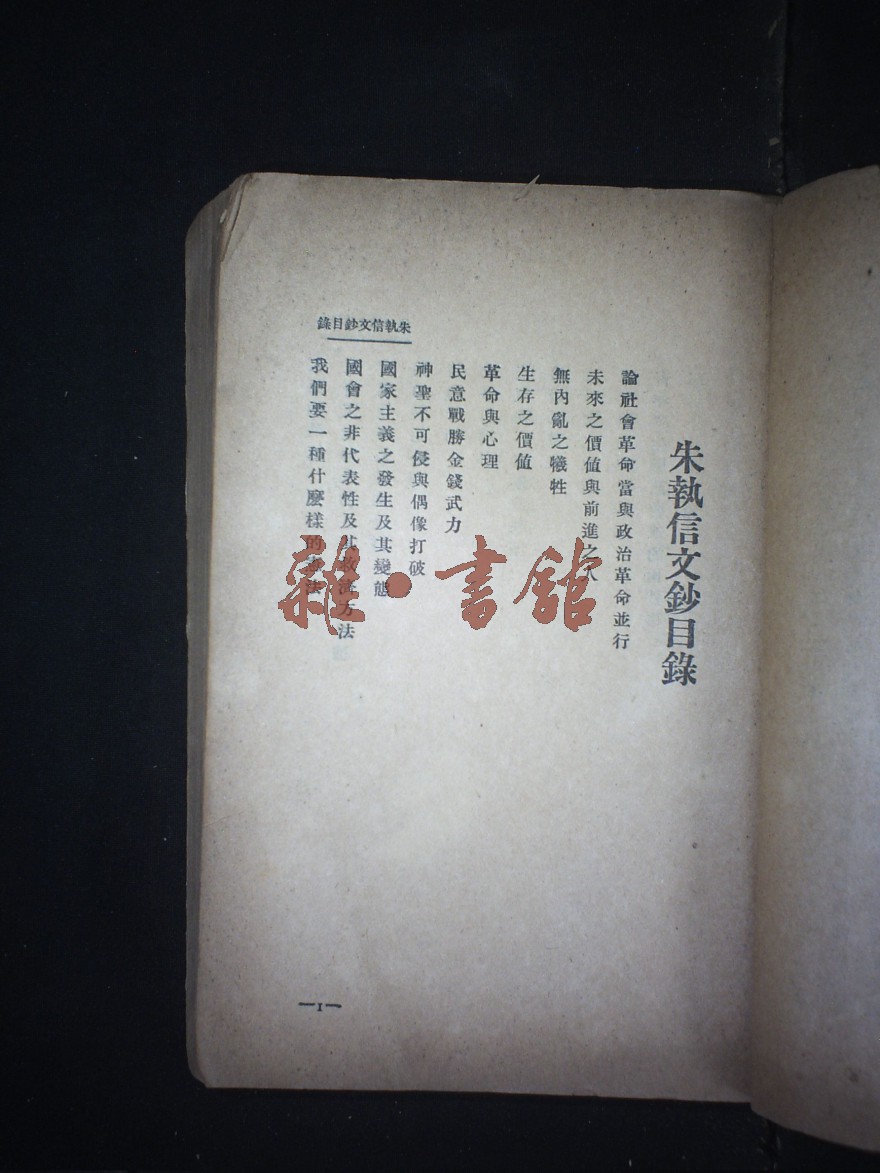 朱執信文鈔目錄
論社會革命當與政治革命並行
未來之價値與前進之人
無內亂之犧牲
生存之價値
革命與心理
民意戰勝金錢武力
神聖不可侵與偶像打破
國家主義之發生及其變態
國會之非代表性及其救濟方法
我們要一種什麼樣的憲法
朱執信文鈔目錄
—1—
雜·書館